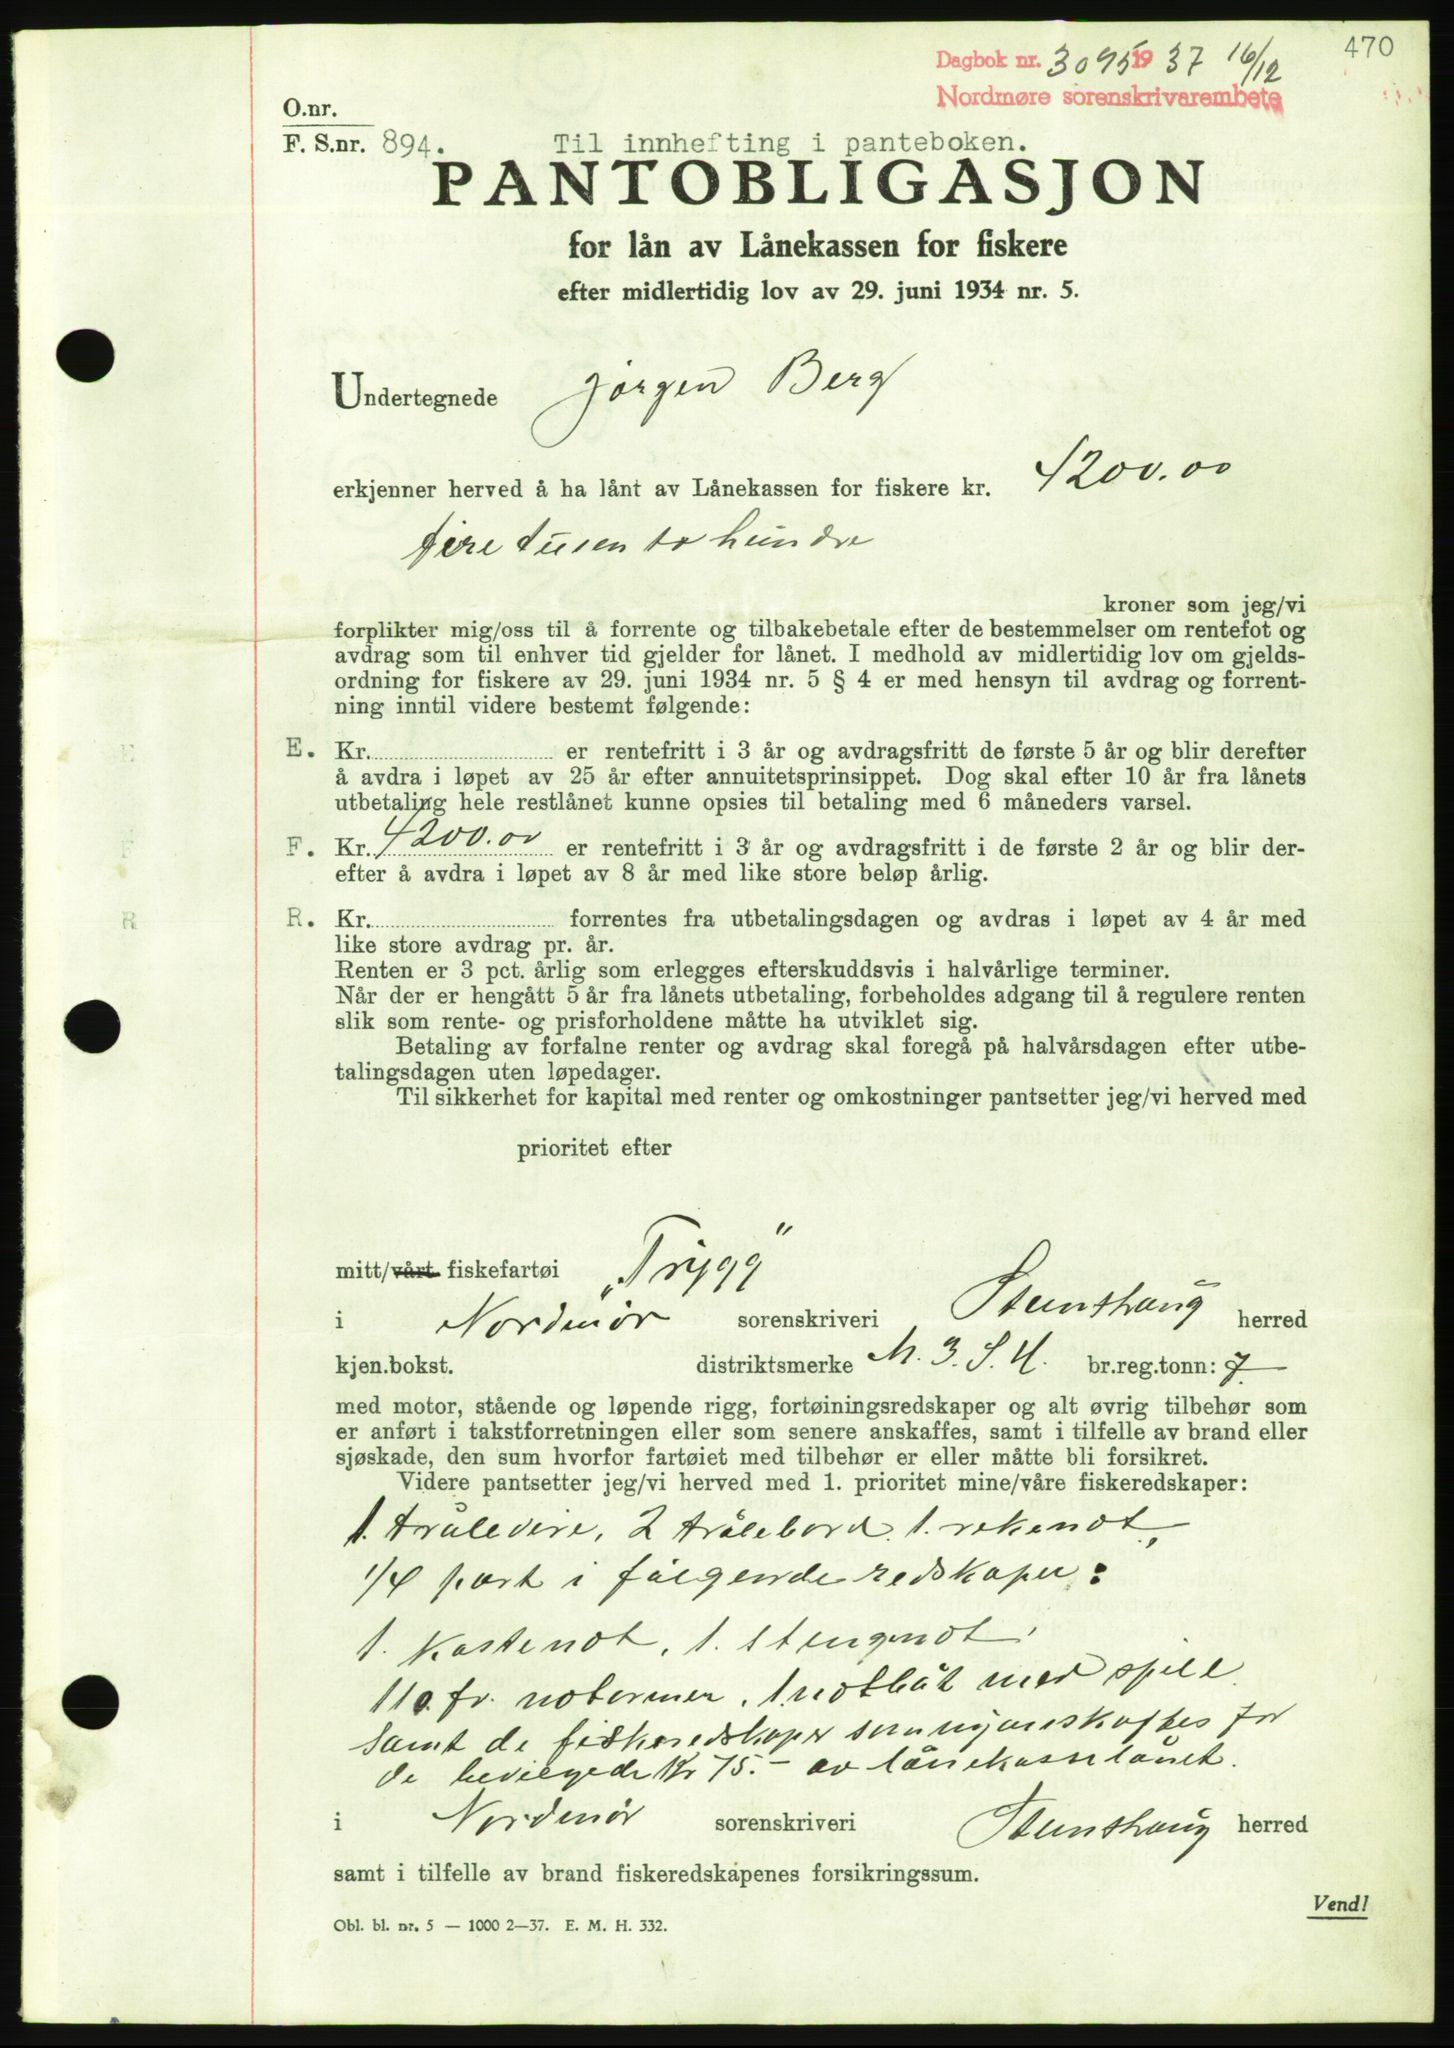 470
Dagbok nr. 3095 1937 16/12
Nordmøre sorenskrivarembete
O.nr.
F. S.nr. 894.
Til innhefting i panteboken.
PANTOBLIGASJON
for lån av Lånekassen for fiskere
efter midlertidig lov av 29. juni 1934 nr. 5.
Undertegnede Jørgen Berg
erkjenner herved å ha lånt av Lånekassen for fiskere kr. 4200.00
fire tusen to hundre
kroner som jeg/vi
forplikter mig/oss til å forrente og tilbakebetale efter de bestemmelser om rentefot og
avdrag som til enhver tid gjelder for lånet. I medhold av midlertidig lov om gjelds-
ordning for fiskere av 29. juni 1934 nr. 5 § 4 er med hensyn til avdrag og forrent-
ning inntil videre bestemt følgende:
E. Kr. er rentefritt i 3 år og avdragsfritt de første 5 år og blir derefter
å avdra i løpet av 25 år efter annuitetsprinsippet. Dog skal efter 10 år fra lånets
utbetaling hele restlånet kunne opsies til betaling med 6 måneders varsel.
F. Kr. 4200.00 er rentefritt i 3 år og avdragsfritt i de første 2 år og blir der-
efter å avdra i løpet av 8 år med like store beløp årlig.
R. Kr. forrentes fra utbetalingsdagen og avdras i løpet av 4 år med
like store avdrag pr. år.
Renten er 3 pct. årlig som erlegges efterskuddsvis i halvårlige terminer.
Når der er hengått 5 år fra lånets utbetaling, forbeholdes adgang til å regulere renten
slik som rente- og prisforholdene måtte ha utviklet sig.
Betaling av forfalne renter og avdrag skal foregå på halvårsdagen efter utbe-
talingsdagen uten løpedager.
Til sikkerhet for kapital med renter og omkostninger pantsetter jeg/vi herved med
prioritet efter
mitt/vårt fiskefartøi "Trygg"
i Nordmør sorenskriveri Stemshaug herred
kjen.bokst. distriktsmerke M. 3. S. H. br.reg.tonn: 7
med motor, stående og løpende rigg, fortøiningsredskaper og alt øvrig tilbehør som
er anført i takstforretningen eller som senere anskaffes, samt i tilfelle av brand eller
sjøskade, den sum hvorfor fartøiet med tilbehør er eller måtte bli forsikret.
Videre pantsetter jeg/vi herved med 1. prioritet mine/våre fiskeredskaper:
1. trålevire, 2 trålebord, 1. rekenot,
1/4 part i følgende redskaper:
1. Kastenot, 1. stengnot,
110 fv. notormer, 1 notbåt med spill
samt de fiskeredskaper som nyanskaffes for
de bevilgede Kr 75.- av lånekasselånet.
i Nordmør sorenskriveri Stemshaug herred
samt i tilfelle av brand fiskeredskapenes forsikringssum.
Vend!
Obl. bl. nr. 5 — 1000 2—37. E. M. H. 332.